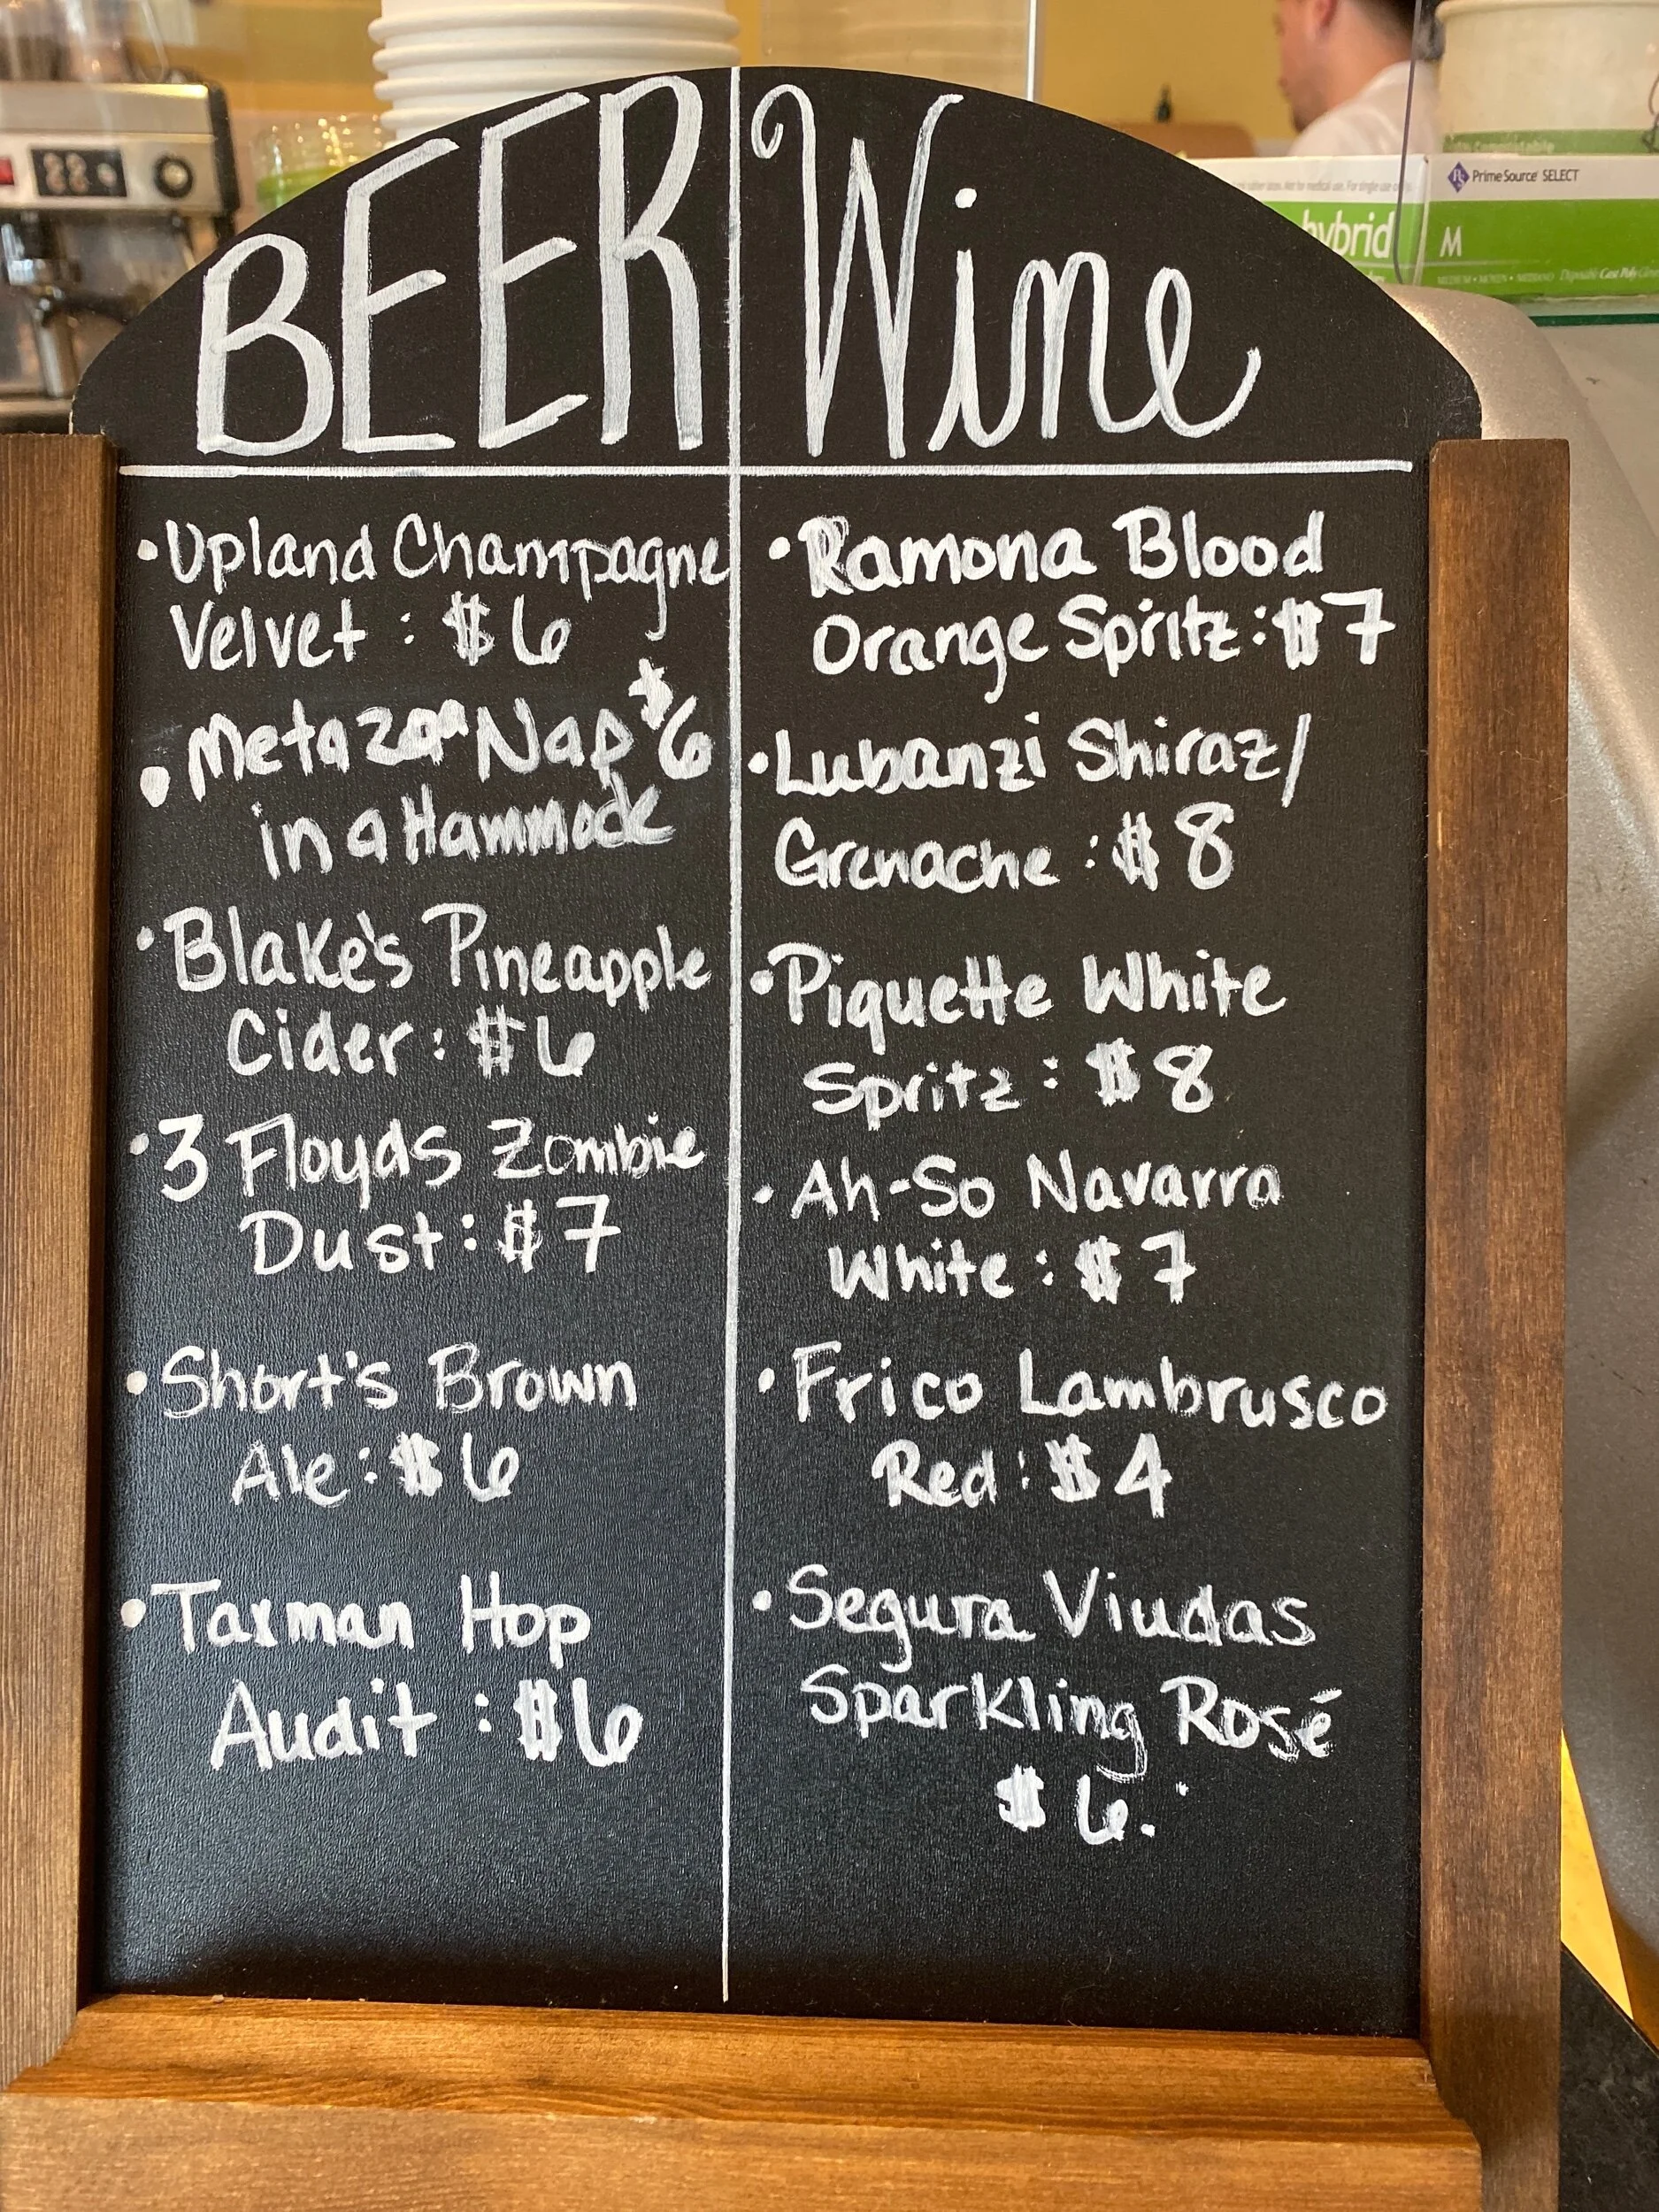 BEER
Wine
•Upland Champagne
Velvet : $6
•Metazoa Nap $6
in a Hammock
•Blake's Pineapple
Cider: $6
•3 Floyds Zombie
Dust: $7
•Short's Brown
Ale: $6
•Taxman Hop
Audit : $6
•Ramona Blood
Orange Spritz: $7
•Lubanzi Shiraz/
Grenache : $8
•Piquette White
Spritz: $8
•Ah-So Navarra
White: $7
•Frico Lambrusco
Red: $4
•Segura Viudas
Sparkling Rosé
$6.
hybrid
PrimeSource SELECT
M